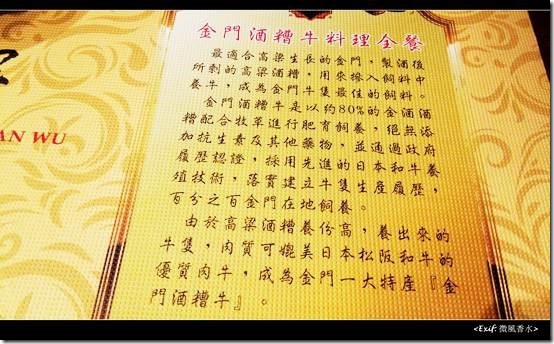 金門酒糟牛料理全餐
最適合高梁生長的金門，製酒後
所剩的高梁酒糟，用來摻入飼料中
養牛，成為金門牛隻最佳的飼料。
金門酒糟牛是以約80%的金酒酒
糟配合牧草進行肥育飼養，絕無添
加抗生素及其他藥物，並通過政府
履歷認證，採用先進的日本和牛養
殖技術，落實建立牛隻生產履歷，
百分之百金門在地飼養。
由於高梁酒糟養份高，養出來的
牛隻，肉質可媲美日本松阪和牛的
優質肉牛，成為金門一大特產『金
門酒糟牛』。
AN WU
<Exif:微風香水>